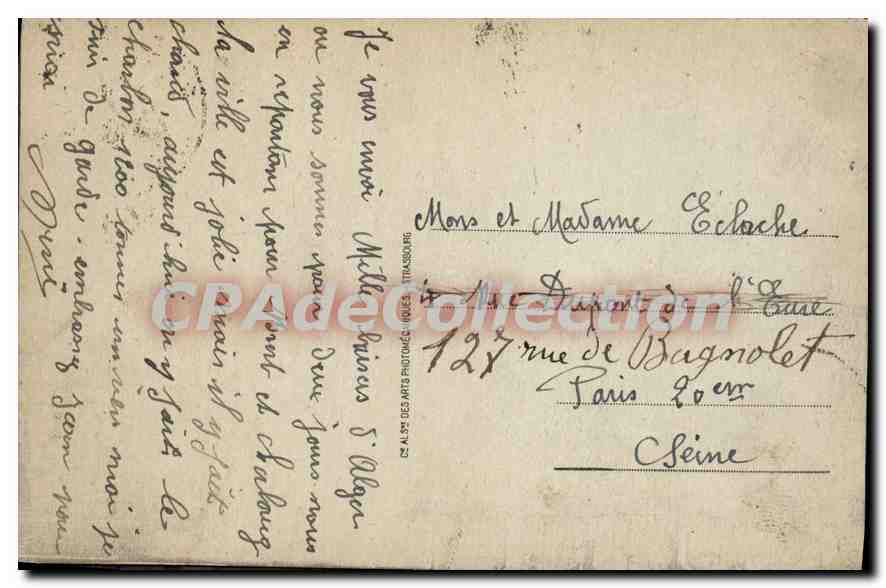 Je vous envoi Mille baisers d'Alger
ou nous sommes pour deux jours nous
en repartons pour Brest et Cherbourg
la ville est jolie mais il y fait
chaud, aujourd'hui
charbon 1200 tonnes moi je
suis de garde. embrassez Jean pour
moi
René
Mons et Madame Eclache
Rue Dupont de l'Eure
127 rue de Bagnolet
Paris 20em
Seine
Cie ALSne DES ARTS PHOTOMÉCHNIQUES, STRASBOURG
CPADeCollection